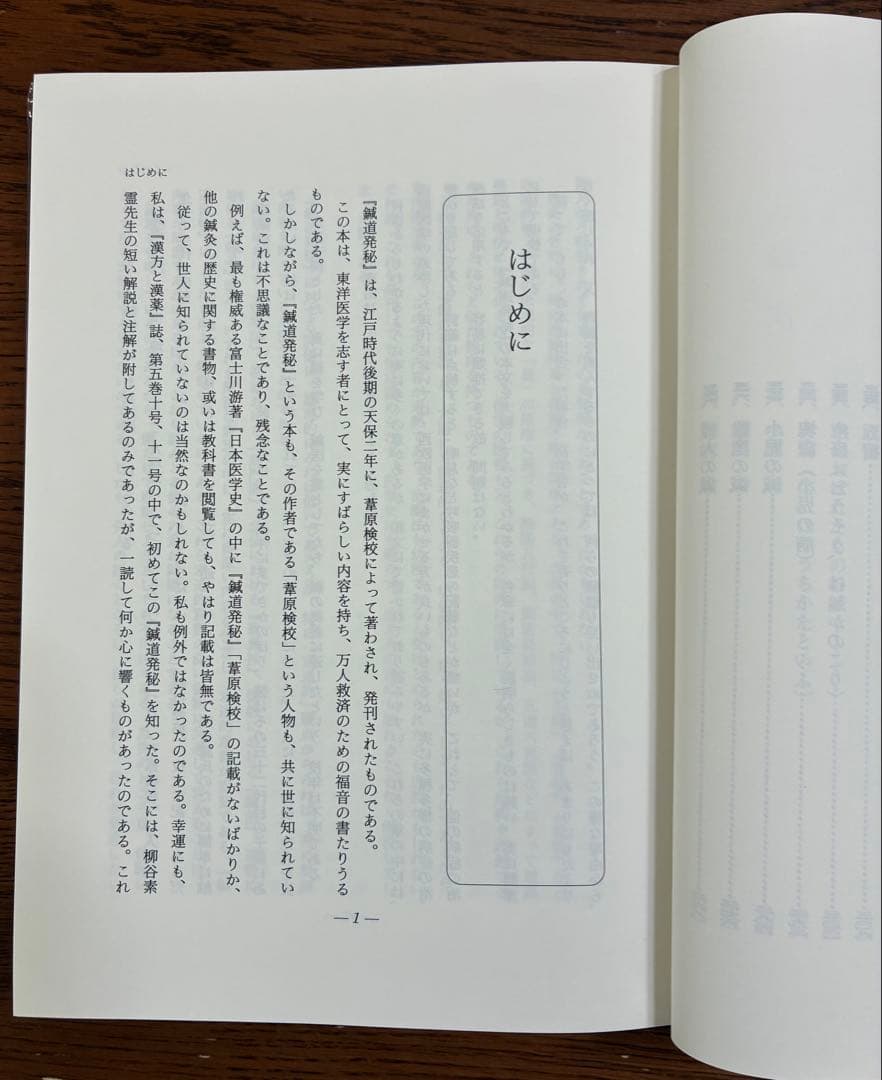 はじめに
はじめに
『鍼道発秘』は、江戸時代後期の天保二年に、葦原検校によって著わされ、発刊されたものである。
この本は、東洋医学を志す者にとって、実にすばらしい内容を持ち、万人救済のための福音の書たりうる
ものである。
しかしながら、『鍼道発秘』という本も、その作者である「葦原検校」という人物も、共に世に知られてい
ない。これは不思議なことであり、残念なことである。
例えば、最も権威ある富士川游著『日本医学史』の中に『鍼道発秘』「葦原検校」の記載がないばかりか、
他の鍼灸の歴史に関する書物、或いは教科書を閲覧しても、やはり記載は皆無である。
従って、世人に知られていないのは当然なのかもしれない。私も例外ではなかったのである。幸運にも、
私は、『漢方と漢薬』誌、第五巻十号、十一号の中で、初めてこの『鍼道発秘』を知った。そこには、柳谷素
霊先生の短い解説と注解が附してあるのみであったが、一読して何か心に響くものがあったのである。これ
— 1 —